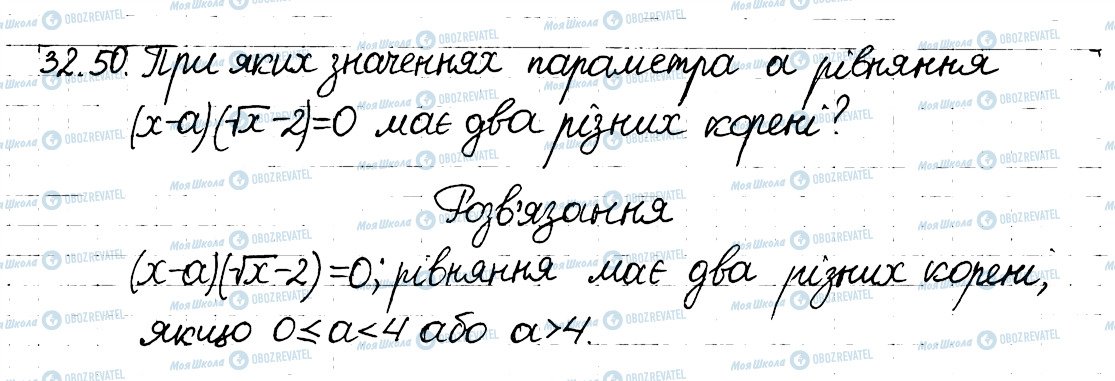 32.50. При яких значеннях параметра а рівняння
(x-a)(√x-2)=0 має два різних корені?
Розв'язання
(x-a)(√x-2)=0; рівняння має два різних корені,
якщо 0≤a<4 або a>4.